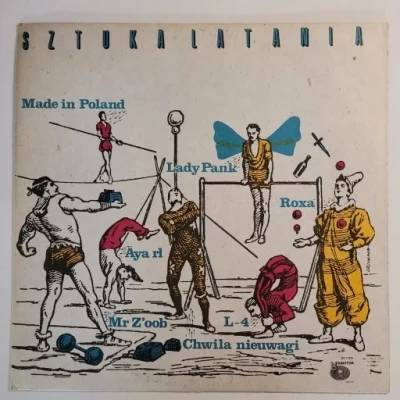 SZTUKA LATANIA
Made in Poland
Lady Pank
Roxa
Aya rl
Mr Z'oob
L-4
Chwila nieuwagi